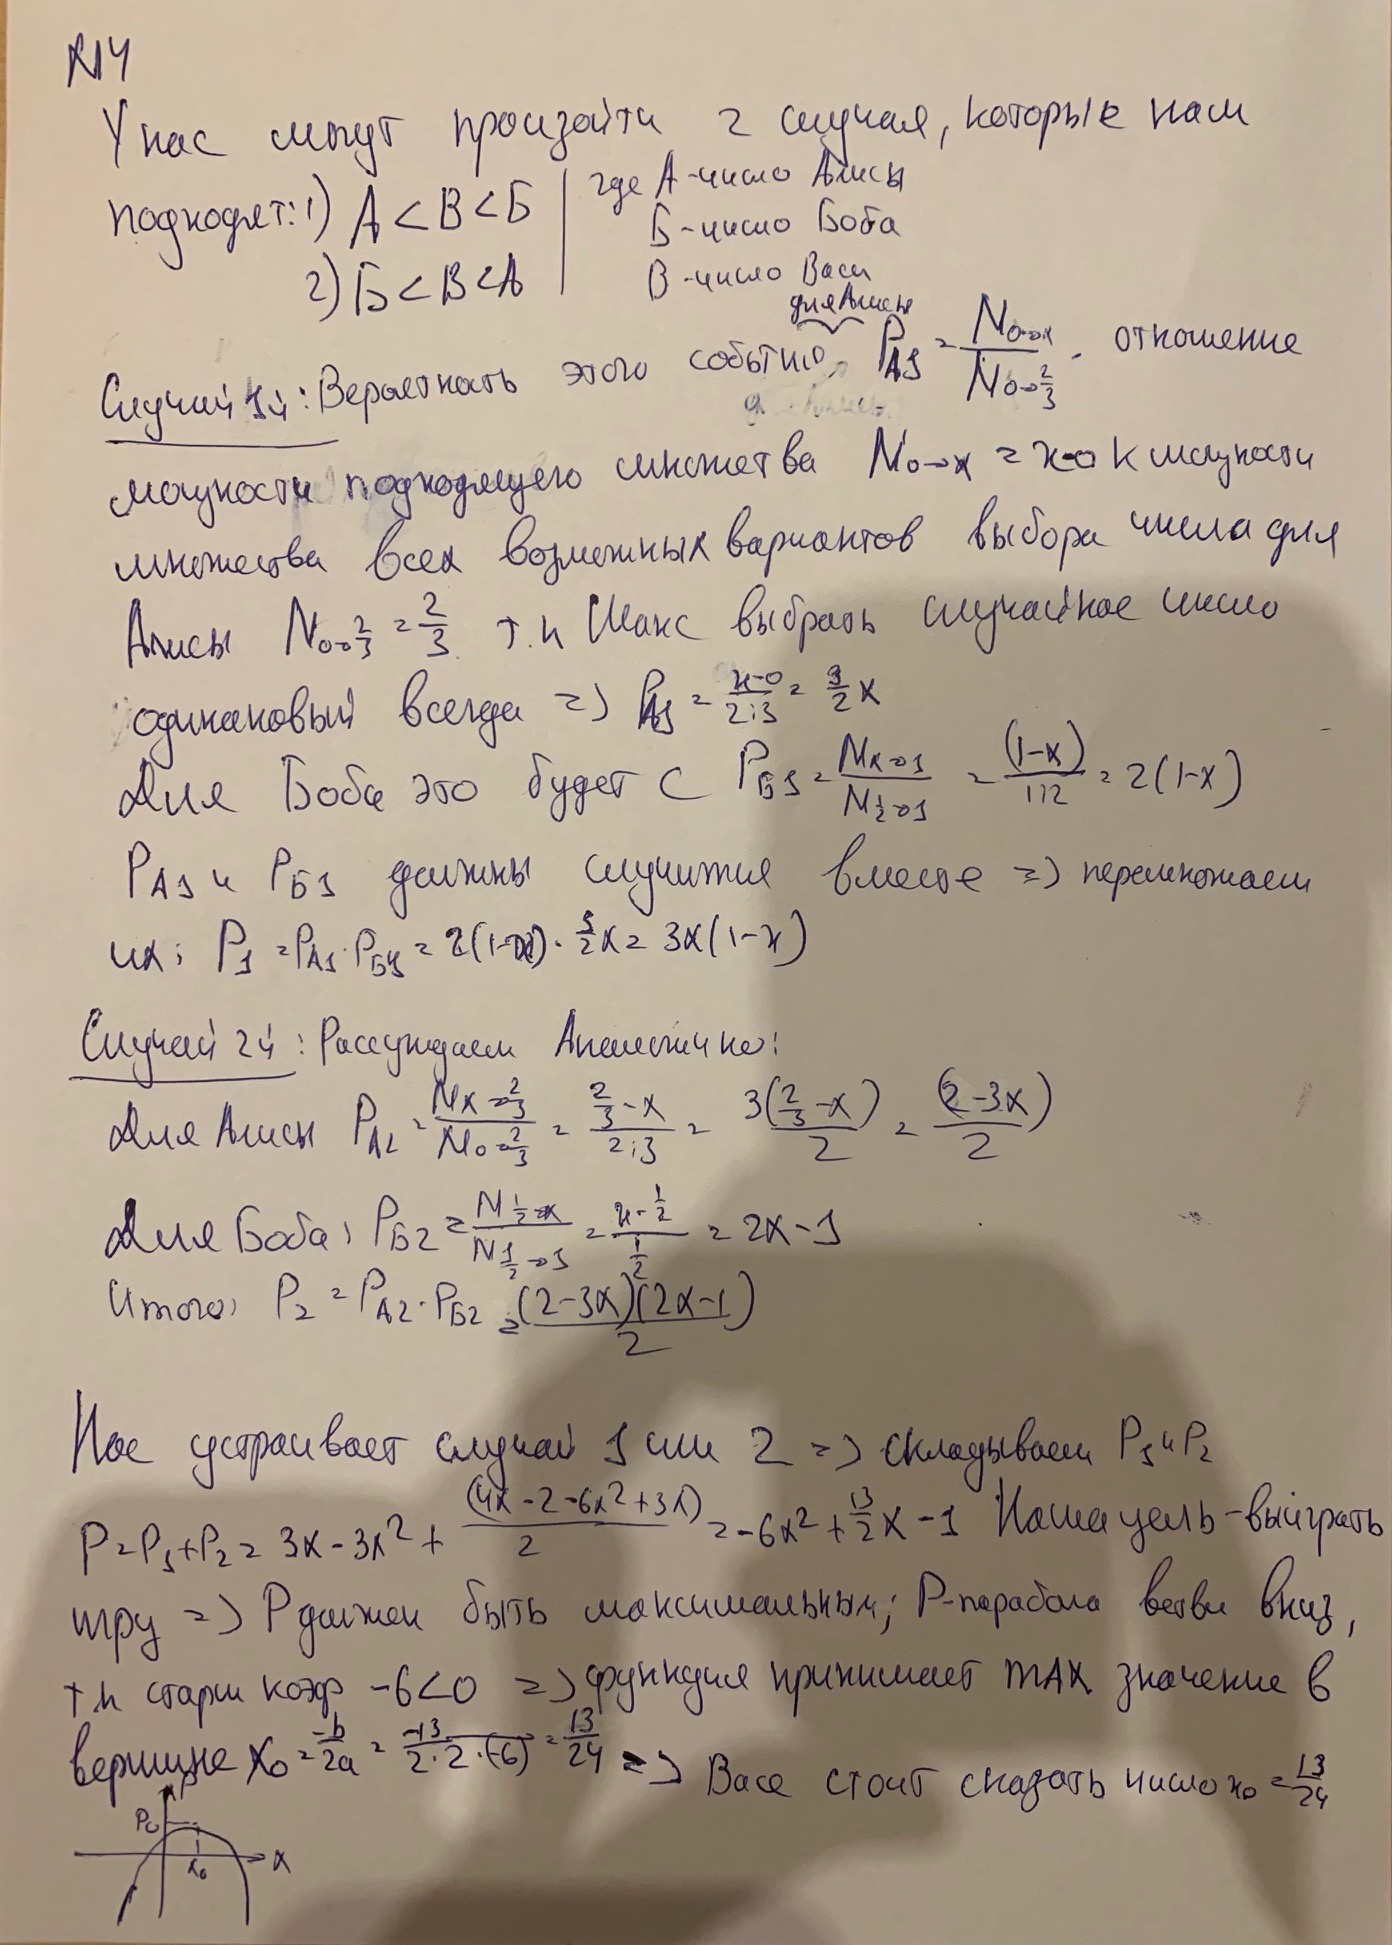 №4
У нас могут произойти 2 случая, которые нам
подходят: 1) А < В < Б | где А-число Алисы
Б-число Боба
2) Б < В < А В-число Васи
для Алисы
Случай 1й: Вероятность этого события, P_A1 = N_0→x / N_0→2/3 - отношение
мощности подходящего множества N_0→x = x-0 к мощности
множества всех возможных вариантов выбора числа для
Алисы N_0→2/3 = 2/3 т.к Шанс выбрать случайное число
одинаковый всегда => P_A1 = x-0 / 2:3 = 3/2 x
Для Боба это будет с P_Б1 = N_x→1 / N_1/2→1 = (1-x) / 1:2 = 2(1-x)
P_A1 и P_Б1 должны случится вместе => перемножаем
их: P_1 = P_A1 · P_Б1 = 2(1-x) · 3/2 x = 3x(1-x)
Случай 2й: Рассуждаем Аналогично:
Для Алисы P_A2 = N_x→2/3 / N_0→2/3 = 2/3 - x / 2:3 = 3(2/3 - x) / 2 = (2-3x) / 2
Для Боба: P_Б2 = N_1/2→x / N_1/2→1 = x - 1/2 / 1/2 = 2x-1
Итого: P_2 = P_A2 · P_Б2 = (2-3x)(2x-1) / 2
Нас устраивает случай 1 или 2 => складываем P_1 и P_2
P = P_1 + P_2 = 3x - 3x² + (4x - 2 - 6x² + 3x) / 2 = -6x² + 13/2 x - 1 Наша цель - выйграть
игру => P должен быть максимальным; P-парабола ветви вниз,
т.к старш коэф -6<0 => функция принимает max значение в
вершине x_0 = -b / 2a = -13 / 2·2·(-6) = 13/24 => Васе стоит сказать число x_0 = 13/24
P_0
x_0 x